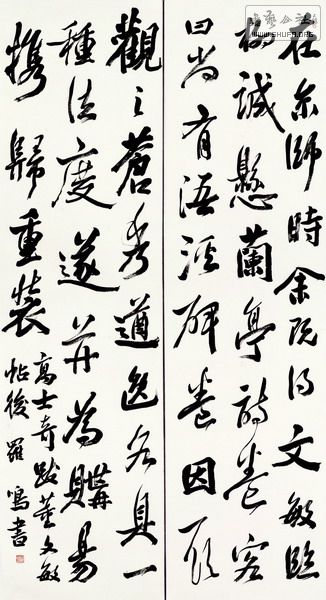 在京師時余既得文敏臨
柳誠懸蘭亭詩卷客
曰尚有浯溪碑卷因
觀之蒼秀遒逸各具一
種法度遂並為購易
攜歸重裝
高士奇跋董文敏
帖後 羅鳴書
WWW.SHUFA.ORG